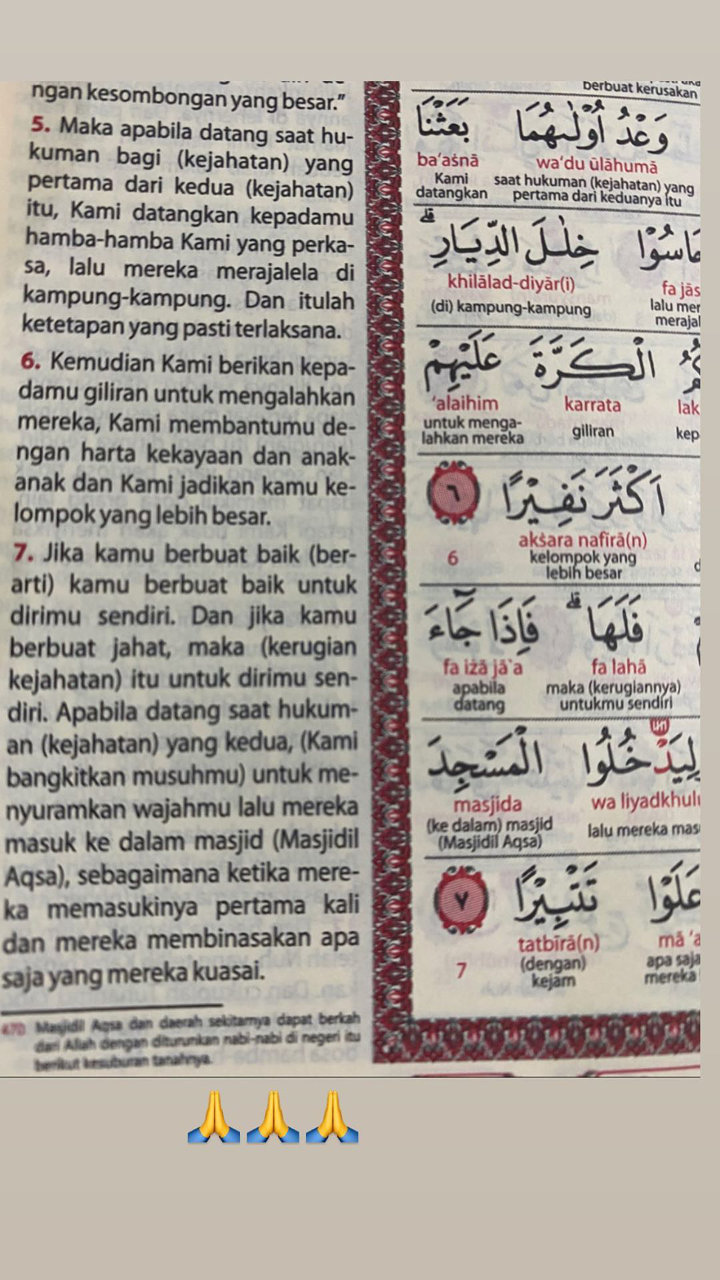 ngan kesombongan yang besar."
5. Maka apabila datang saat hu-
kuman bagi (kejahatan) yang
pertama dari kedua (kejahatan)
itu, Kami datangkan kepadamu
hamba-hamba Kami yang perka-
sa, lalu mereka merajalela di
kampung-kampung. Dan itulah
ketetapan yang pasti terlaksana.
6. Kemudian Kami berikan kepa-
damu giliran untuk mengalahkan
mereka, Kami membantumu de-
ngan harta kekayaan dan anak-
anak dan Kami jadikan kamu ke-
lompok yang lebih besar.
7. Jika kamu berbuat baik (ber-
arti) kamu berbuat baik untuk
dirimu sendiri. Dan jika kamu
berbuat jahat, maka (kerugian
kejahatan) itu untuk dirimu sen-
diri. Apabila datang saat hukum-
an (kejahatan) yang kedua, (Kami
bangkitkan musuhmu) untuk me-
nyuramkan wajahmu lalu mereka
masuk ke dalam masjid (Masjidil
Aqsa), sebagaimana ketika mere-
ka memasukinya pertama kali
dan mereka membinasakan apa
saja yang mereka kuasai.
470 Masjidil Aqsa dan daerah sekitarnya dapat berkah
dari Allah dengan diturunkan nabi-nabi di negeri itu
berikut kesuburan tanahnya.
berbuat kerusakan
وَعْدُ اُوْلٰىهُمَا بَعَثْنَا
ba'aśnā wa'du ūlāhumā
Kami saat hukuman (kejahatan) yang
datangkan pertama dari keduanya itu
جَاسُوْا خِلٰلَ الدِّيَارِۗ
khilālad-diyār(i) fa jās
(di) kampung-kampung lalu mer
merajal
الْكَرَّةَ عَلَيْهِمْ
'alaihim karrata lak
untuk menga- giliran kep
lahkan mereka
اَكْثَرَ نَفِيْرًا ٦
akśara nafīrā(n)
6 kelompok yang
lebih besar
فَلَهَاۗ فَاِذَا جَاۤءَ
fa iżā jā`a fa lahā
apabila maka (kerugiannya)
datang untukmu sendiri
لِيَدْخُلُوا الْمَسْجِدَ
masjida wa liyadkhulu
(ke dalam) masjid lalu mereka mas
(Masjidil Aqsa)
عَلَوْا تَتْبِيْرًا ٧
tatbīrā(n) mā 'a
7 (dengan) apa saja
kejam mereka
🙏🙏🙏